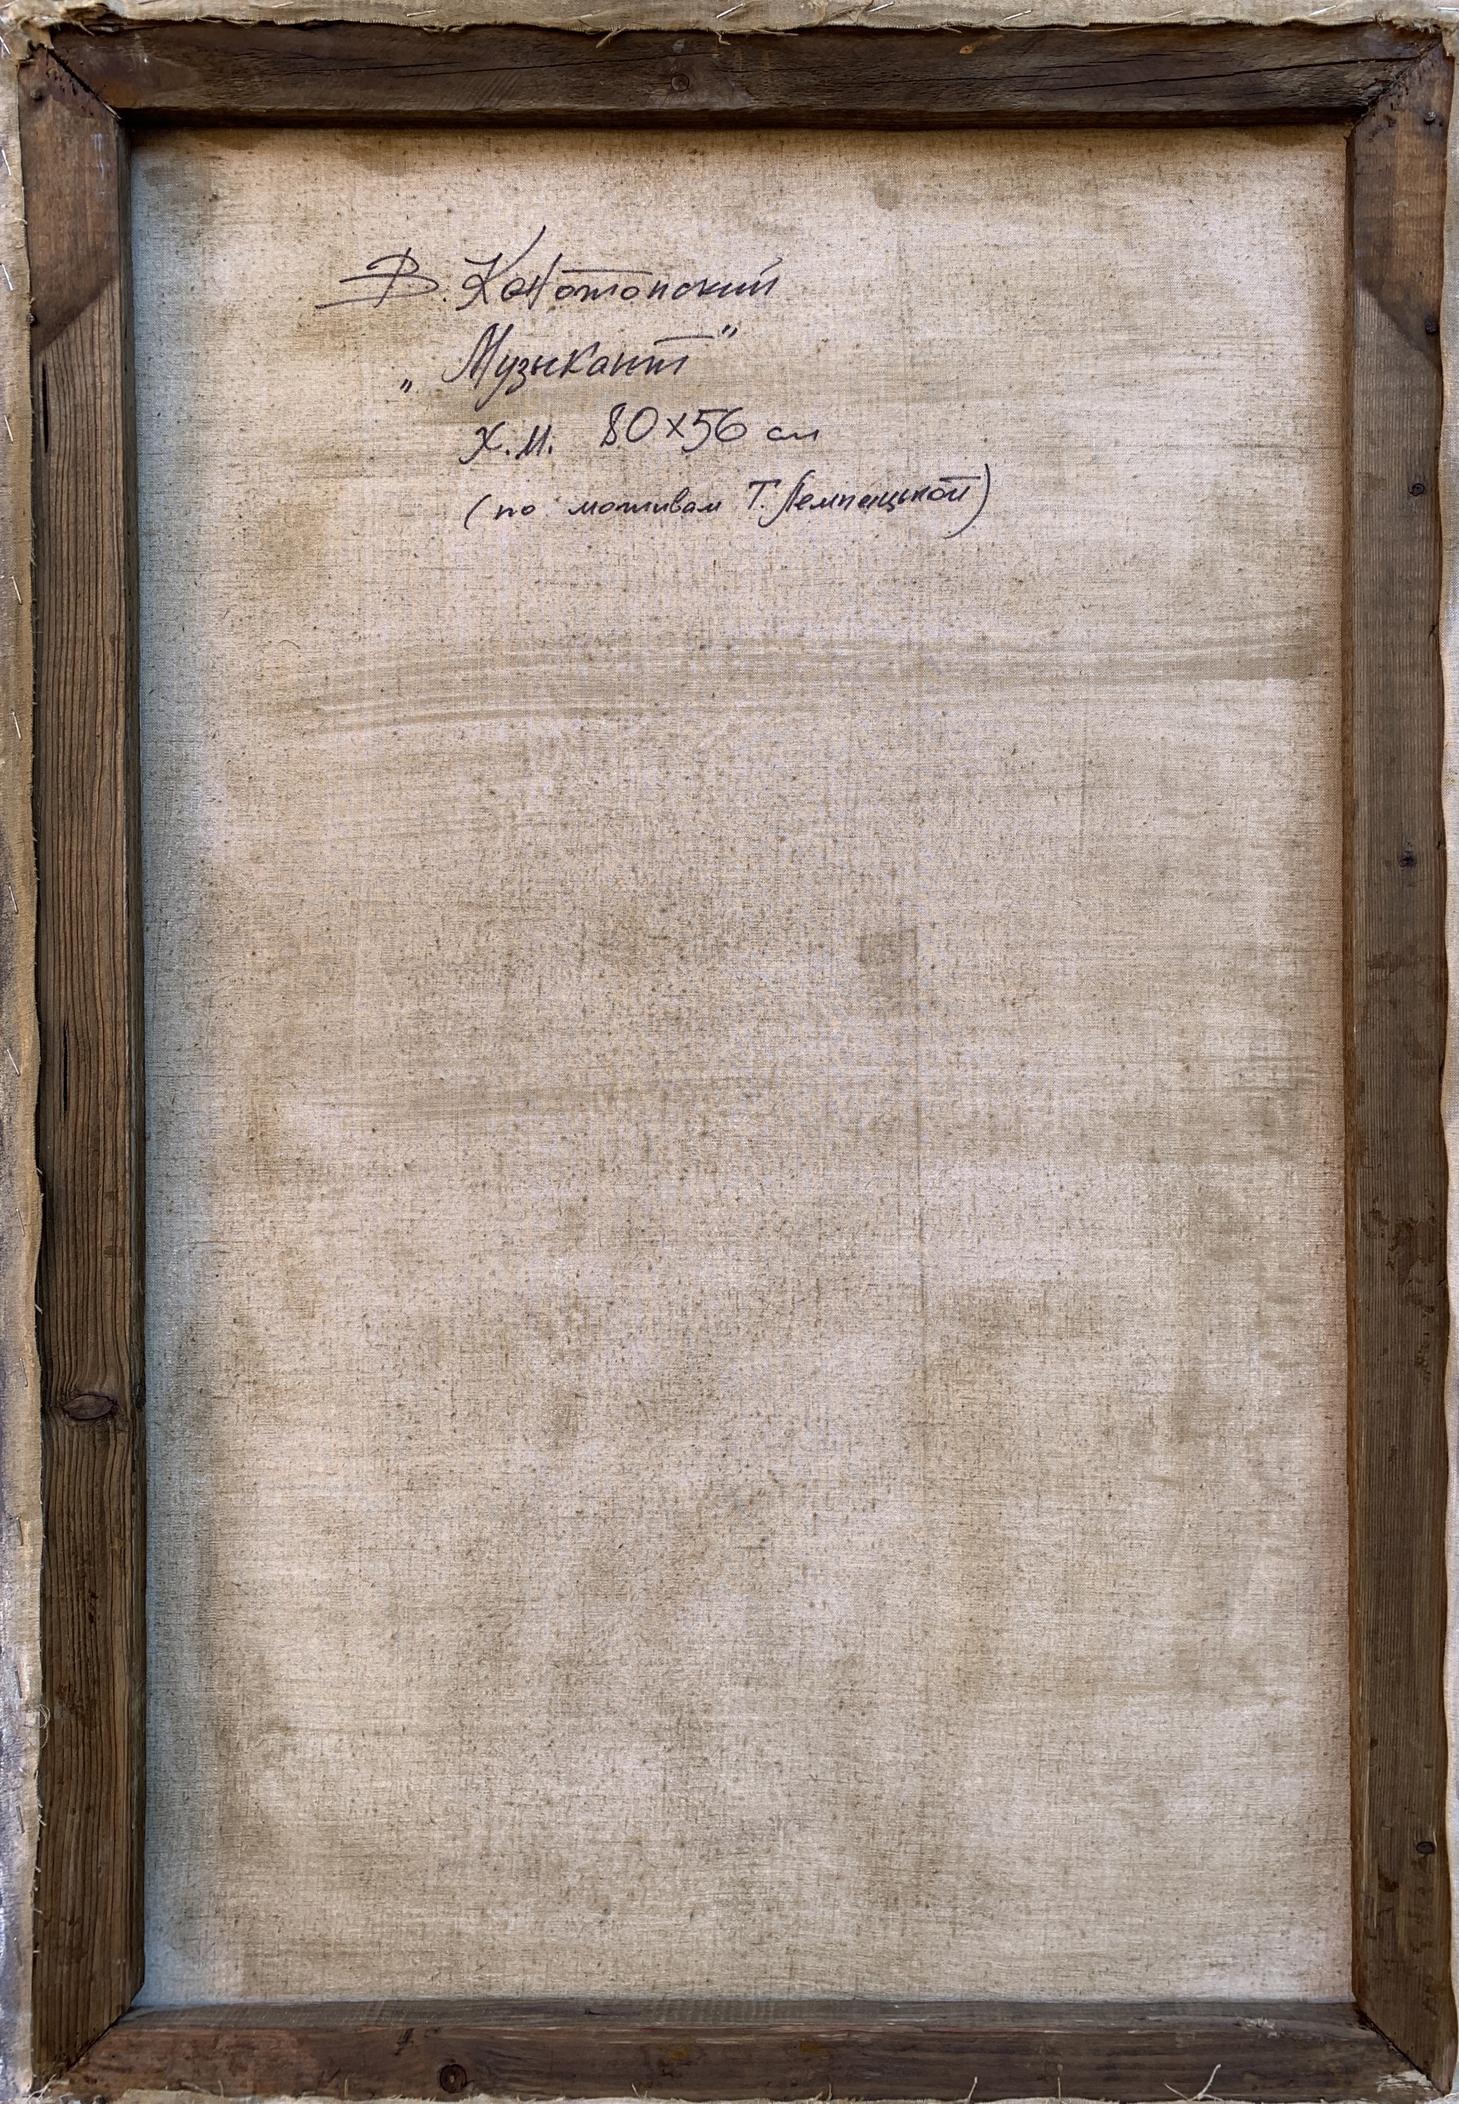 В. Конотопский
„Музыкант"
Х.М. 80х56 см
(по мотивам Т. Лемпицкой)